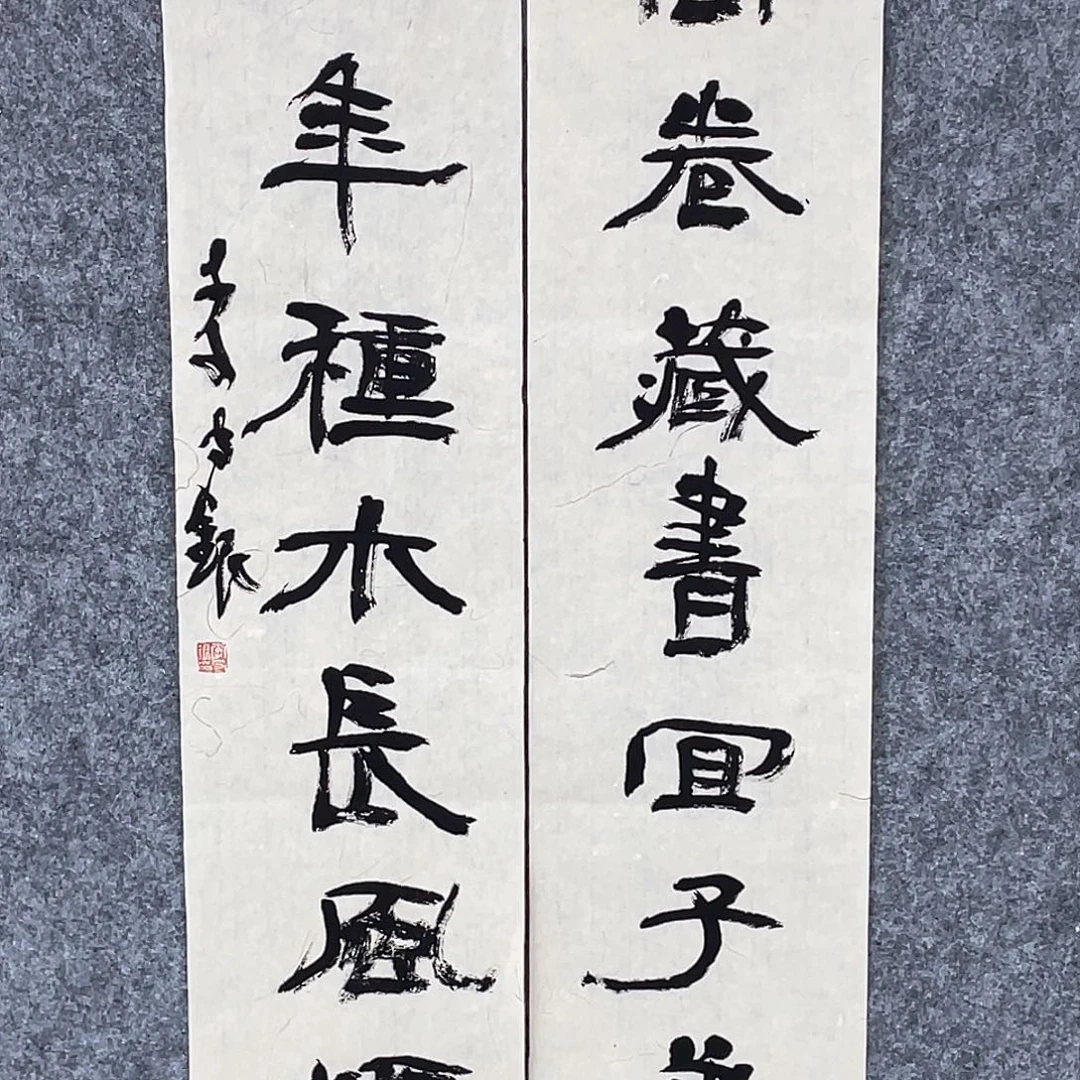 卷藏書宜子
年種木長風
李守銀